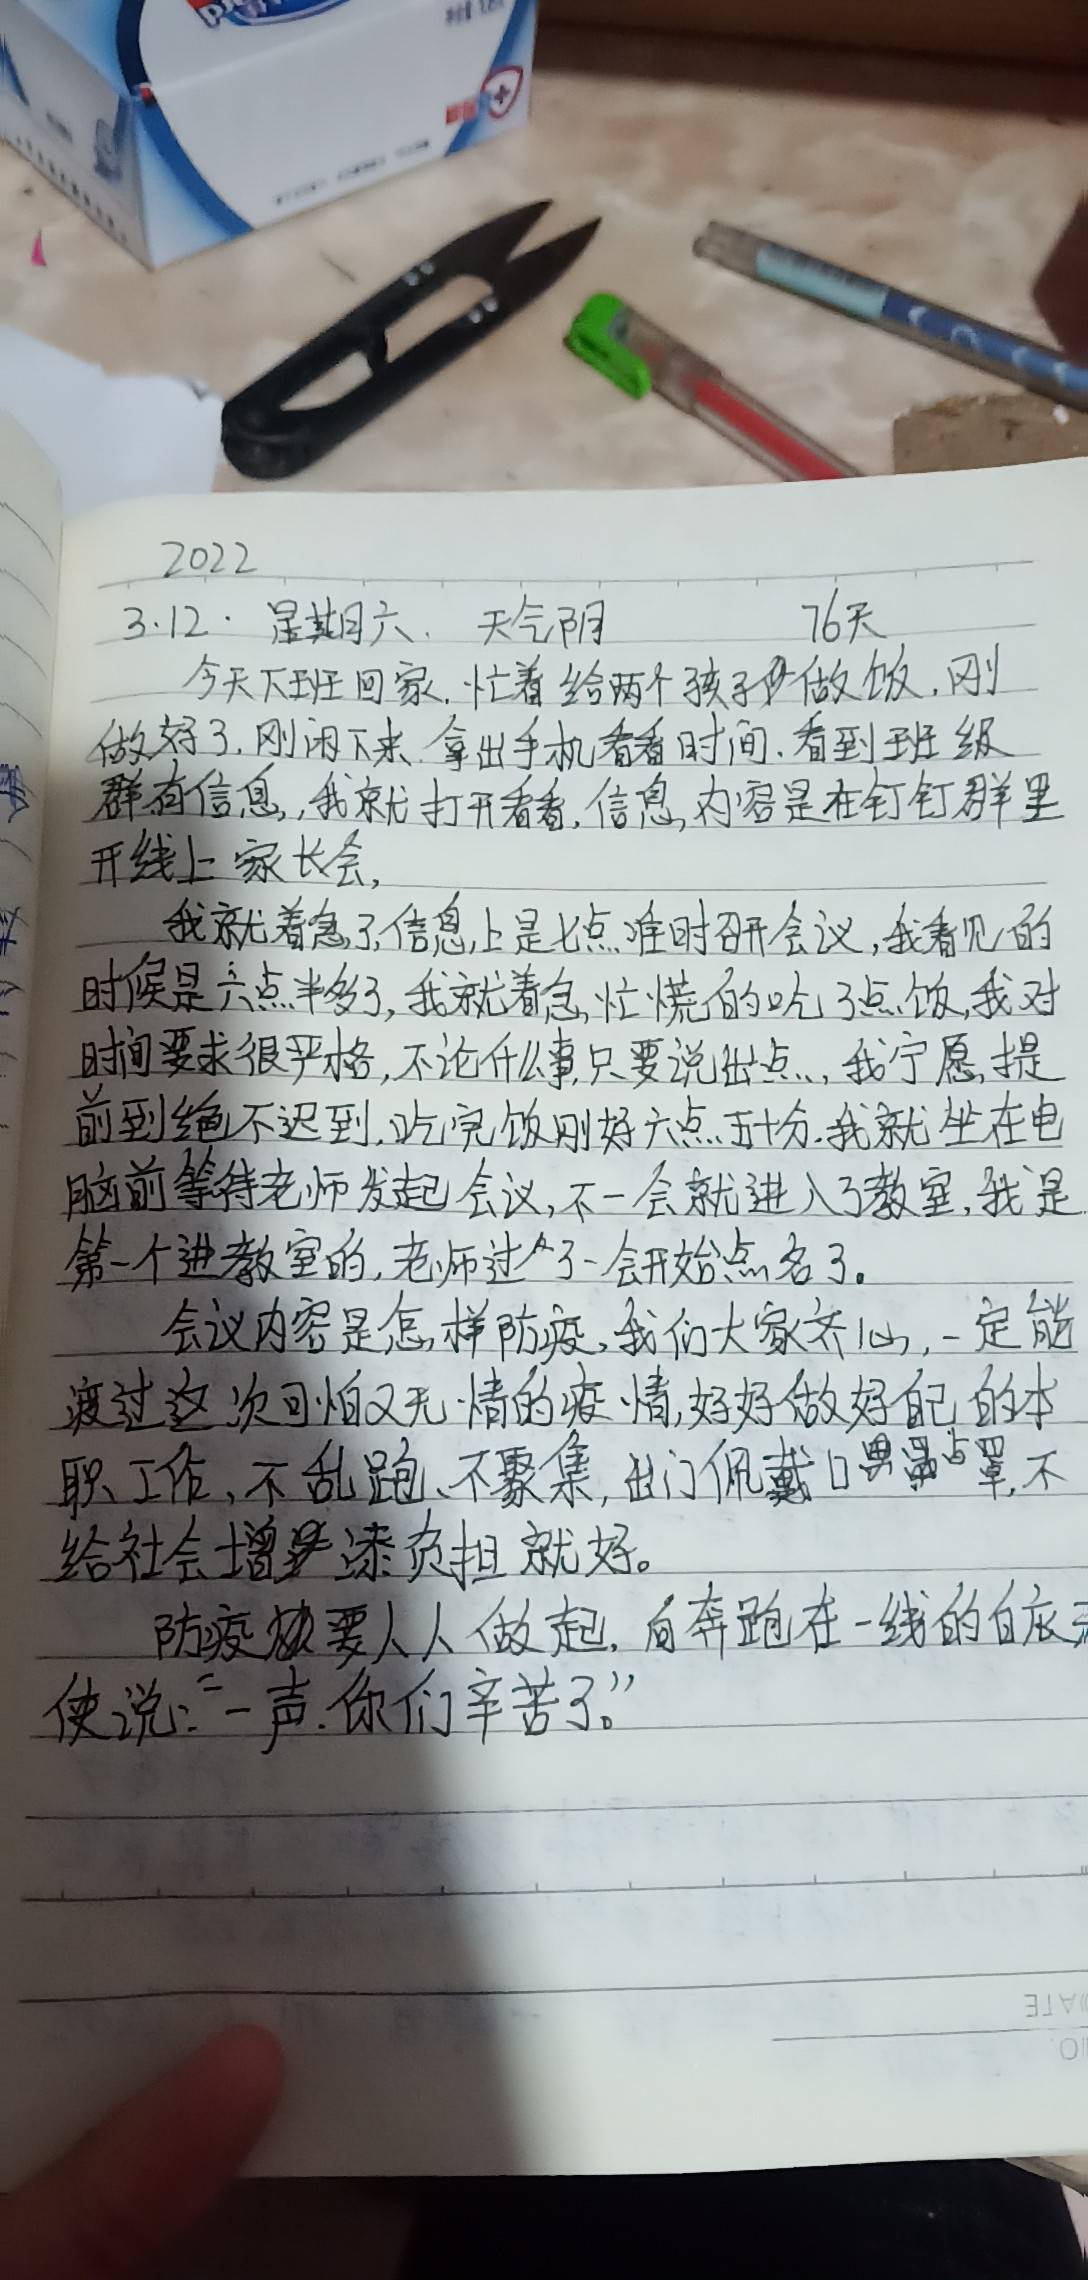 2022
3.12. 星期六. 天气阴 76天
今天下班回家.忙着给两个孩子做饭.刚
做好了.刚闲下来.拿出手机看看时间.看到班级
群有信息,我就打开看看.信息内容是在钉钉群里
开线上家长会,
我就着急了,信息上是七点准时召开会议,我看见的
时候是六点半多了,我就着急,忙慌的吃了点饭,我对
时间要求很严格,不论什么事,只要说出点,我宁愿提
前到绝不迟到.吃完饭刚好六点五十分.我就坐在电
脑前等待老师发起会议,不一会就进入了教室,我是
第一个进教室的,老师过了一会开始点名了。
会议内容是怎样防疫,我们大家齐心,一定能
渡过这次可怕又无情的疫情,好好做好自己的本
职工作、不乱跑、不聚集,出门佩戴口罩,不
给社会增添负担就好。
防疫要人人做起.向奔跑在一线的白衣天
使说:“一声.你们辛苦了。”
DATE